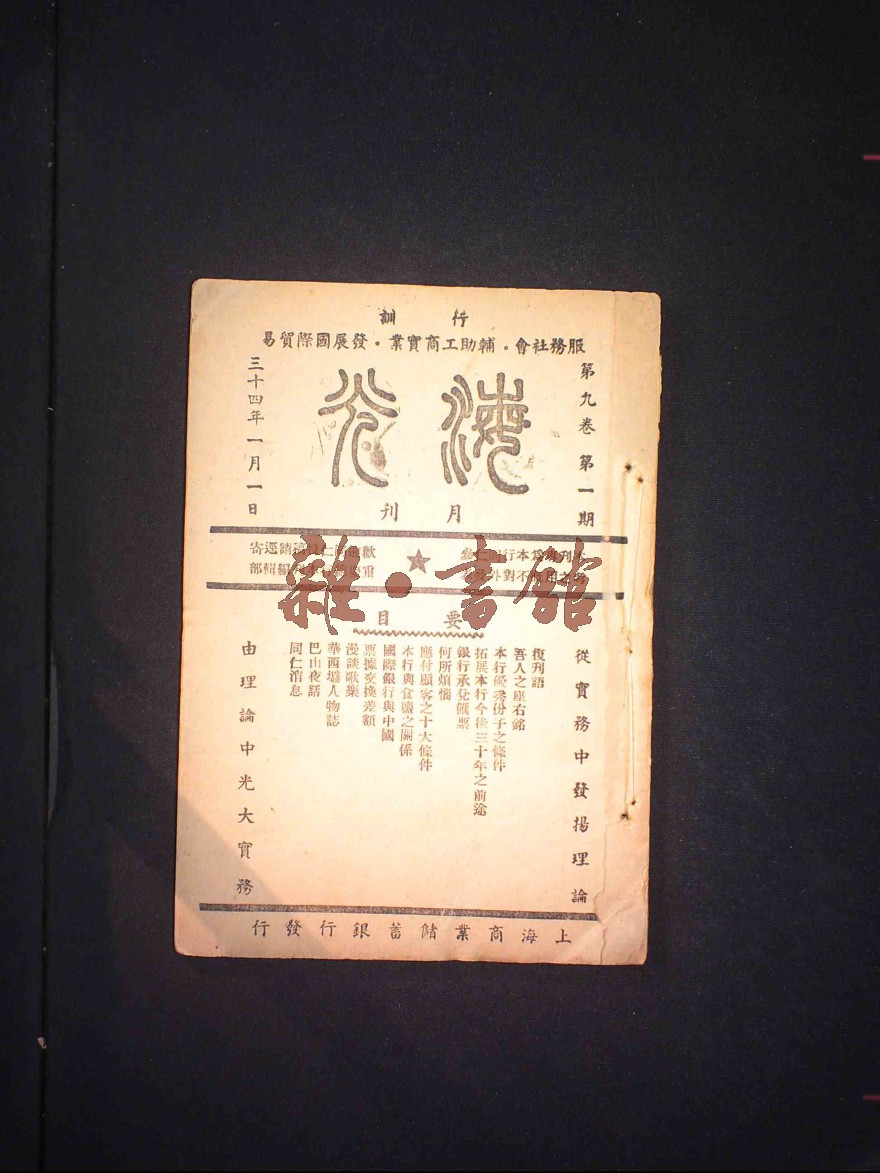 行訓
服務社會・輔助工商實業・發展國際貿易
第九卷 第一期
海光
月刊
三十四年一月一日
雜・書館
要目
從實務中發揚理論
復刊語
吾人之座右銘
本行優秀份子之條件
拓展本行今後三十年之前途
銀行承兌匯票
何所煩惱
應付顧客之十大條件
本行與食鹽之關係
國際銀行與中國
票據交換差額
漫談歌樂
華西壩人物誌
巴山夜話
同仁消息
由理論中光大實務
上海商業儲蓄銀行發行